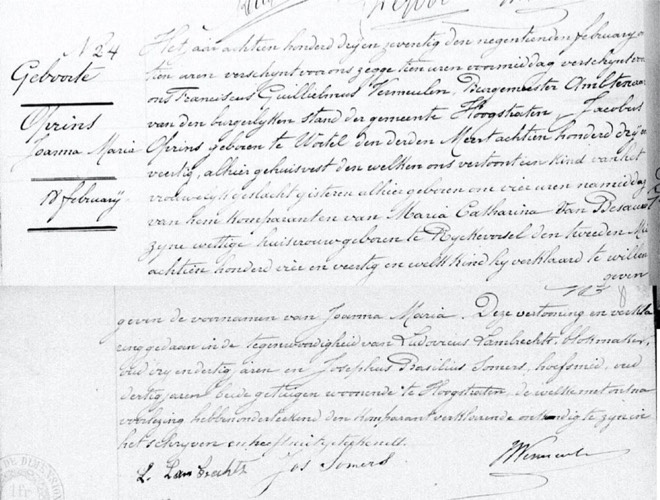 N 24
Geboorte
Ofrins
Joanna Maria
18 february
Het jaar achtien honderd dry en zeventig den negentienden february
tien uren verschynt voor ons zegge tien uren voormiddag verschynt voor
ons Franciscus Guillielmus Vermeulen, Burgemeester Ambtenaar
van den burgerlyken stand der gemeente Hoogstraten, Jacobus
Ofrins geboren te Wortel den derden Meert achtien honderd dry en
veertig, alhier gehuisvest den welken ons vertoont een kind van het
vrouwelyk geslacht gisteren alhier geboren om vier uren namiddag
van hem komparant en van Maria Catharina Van
zyne wettige huisvrouw geboren te Ryckevorsel den tweeden
achtien honderd vier en veertig en welk kind hy verklaard te willen
geven
geven de voornamen van Joanna Maria. Deze vertooning en verkla
ring gedaan in de tegenwoordigheid van Ludovicus Lambrechts, blokmaker,
oud dry en dertig jaren en Josephus Basilius Somers, hoefsmid, oud
dertig jaren beide getuigen woonende te Hoogstraten, de welke met ons na
voorlezing hebben onderteekend den komparant verklarende onkundig te zyn in
het schryven
L. Lambrechts Jos Somers Vermeulen